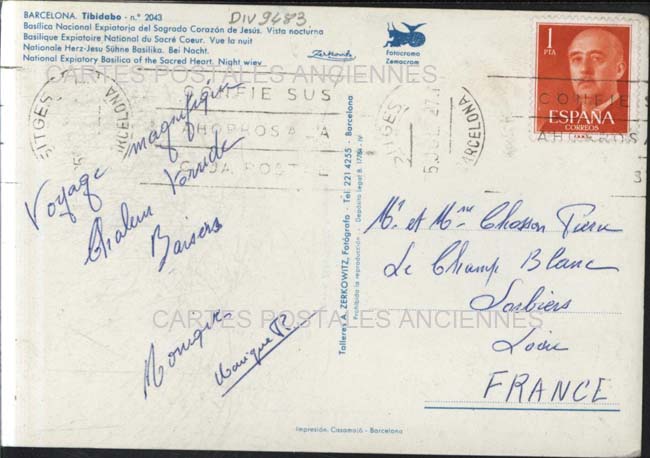 DIV 9483
BARCELONA. Tibidabo - n.º 2043
Basílica Nacional Expiatoria del Sagrado Corazón de Jesús. Vista nocturna
Basilique Expiatoire National du Sacré Coeur. Vue la nuit
Nationale Herz-Jesu Sühne Basilika. Bei Nacht.
National Expiatory Basilica of the Sacred Heart. Night wiev
Zerkowitz
Fotocroma
Zemacrom
1
PTA
ESPAÑA
CORREOS
CARTES POSTALES ANCIENNES
SITGES
BARCELONA
CONFIE SUS
AHORROS A LA
CAJA POSTAL
SITGES
BARCELONA
CONFIE S
AHORROS A
Voyage magnifique
Chaleur
Baisers
Monique
Monique R
Talleres A. ZERKOWITZ, Fotógrafo - Tel. 221 4255 - Barcelona
Prohibida la reproducción - Depósito legal B. 17784-IV
Mr et Mme Chosson Pierre
Le Champ Blanc
Sorbiers
Loire
FRANCE
CARTES POSTALES ANCIENNES
Impresión. Casamajó - Barcelona